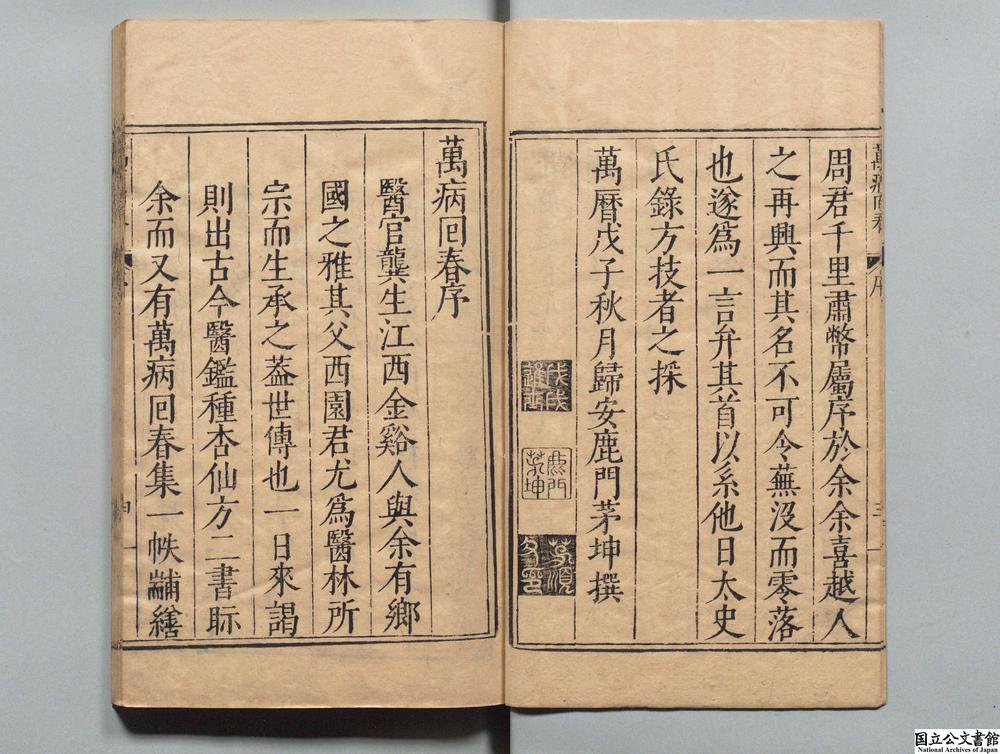 周君千里肅幣屬序於余余喜越人
之再興而其名不可令蕪沒而零落
也遂為一言弁其首以系他日太史
氏錄方技者之採
萬曆戊子秋月歸安鹿門茅坤撰
戊戌進士
鹿門茅坤
萬病回春 序 三
萬病回春序
醫官龔生江西金谿人與余有鄉
國之雅其父西園君尤為醫林所
宗而生承之蓋世傳也一日來謁
則出古今醫鑑種杏仙方二書眎
余而又有萬病回春集一帙黼繕
四
国立公文書館
National Archives of Japan